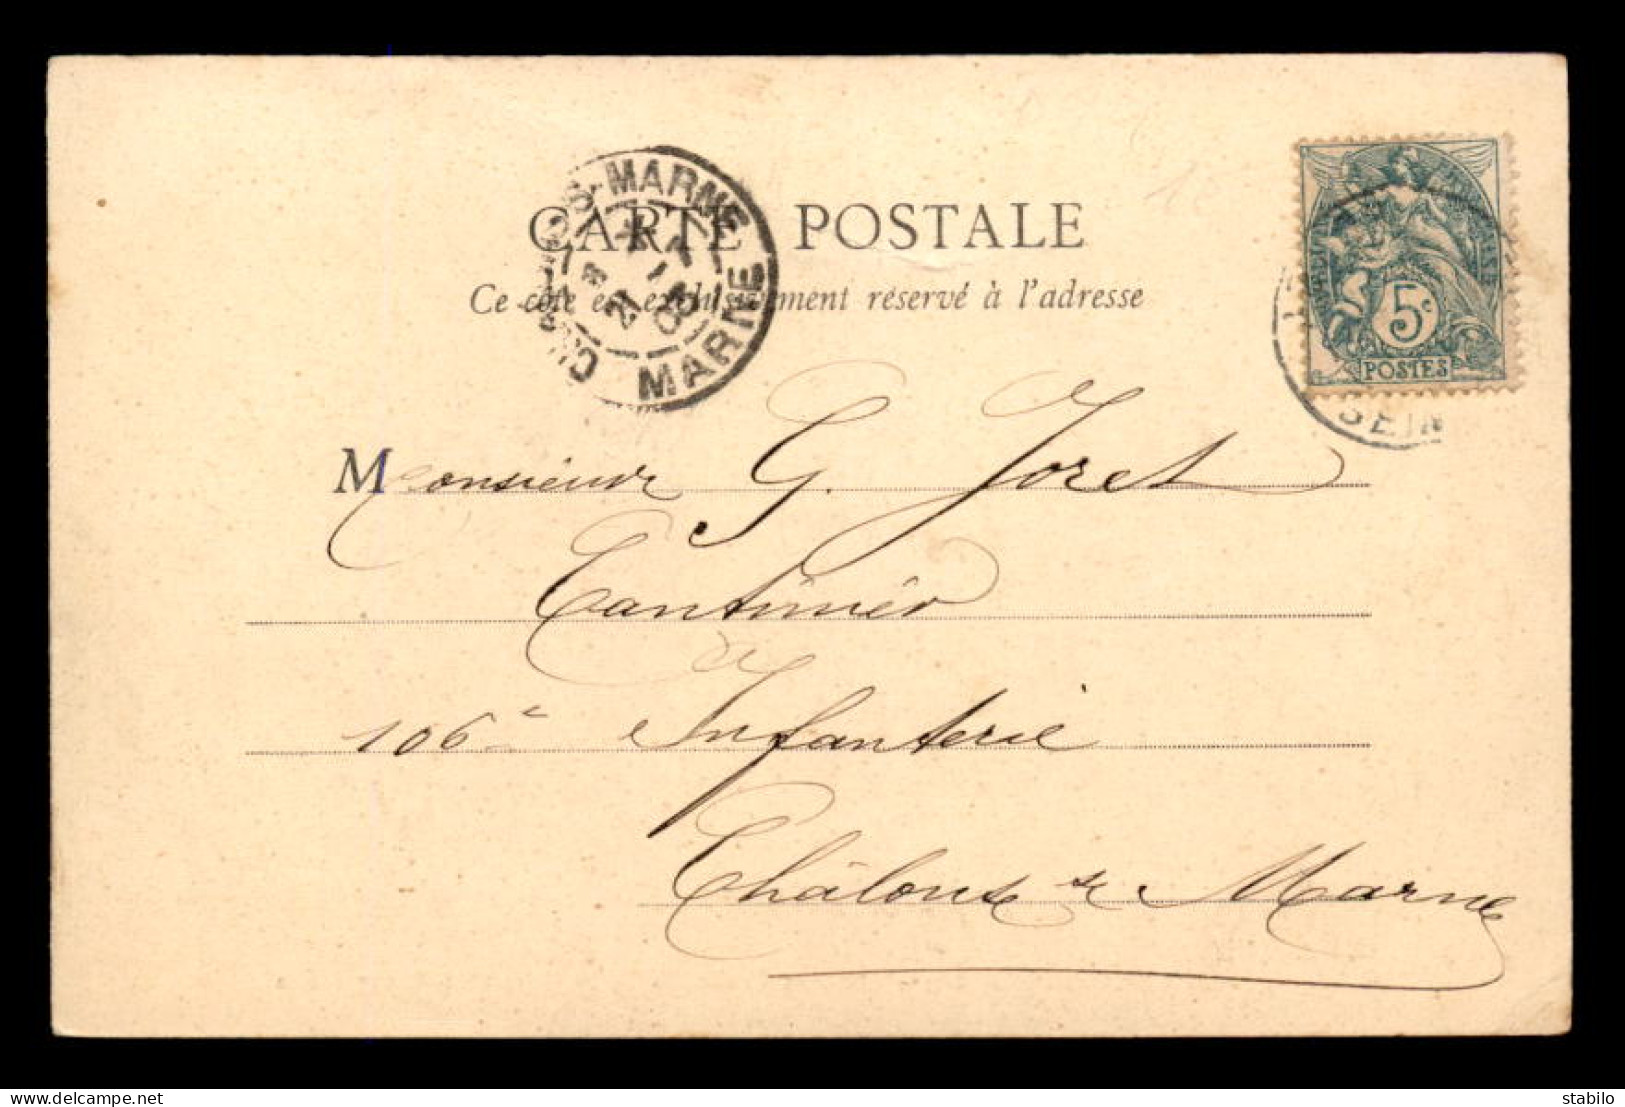 CARTE POSTALE
Ce côté est exclusivement réservé à l'adresse
CHALONS-S-MARNE
21
MARNE
5c
POSTES
SEIN
Monsieur G. Joret
Cantinier
106e Infanterie
Châlons s/ Marne
delcampe.net
stabilo